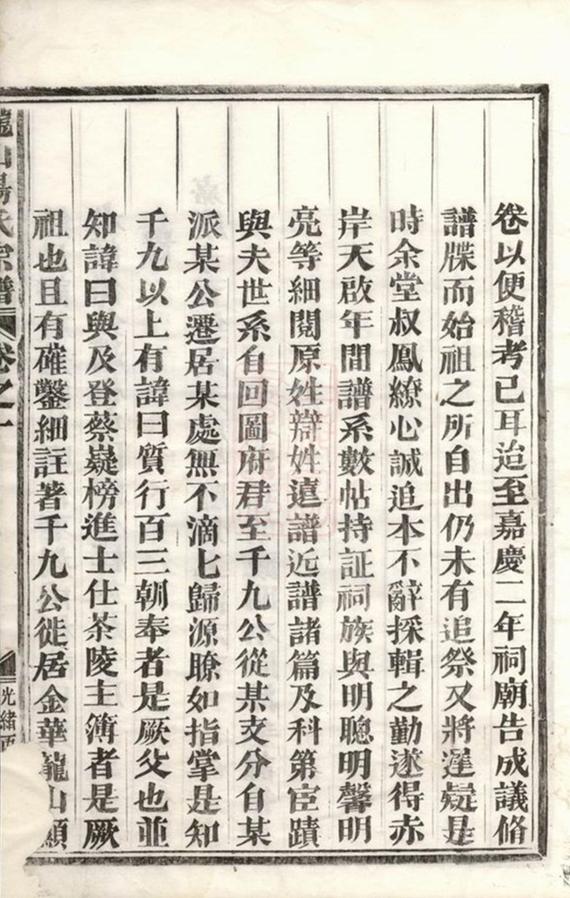 卷以便稽考已耳迨至嘉慶二年祠廟告成議脩
譜牒而始祖之所自出仍未有追祭又將遲疑是
時余堂叔鳳繚心誠追本不辭採輯之勤遂得赤
岸天啟年間譜系數帖持証祠族與明聰明馨明
亮等細閱原姓辯姓遠譜近譜諸篇及科第宦蹟
與夫世系自回圖府君至千九公從某支分自某
派某公遷居某處無不滴七歸源瞭如指掌是知
千九以上有諱曰質行百三朝奉者是厥父也並
知諱曰與及登蔡嶷榜進士仕茶陵主簿者是厥
祖也且有確鑿細註著千九公徙居金華龍山顯
山楊氏宗譜 卷之一 光緒